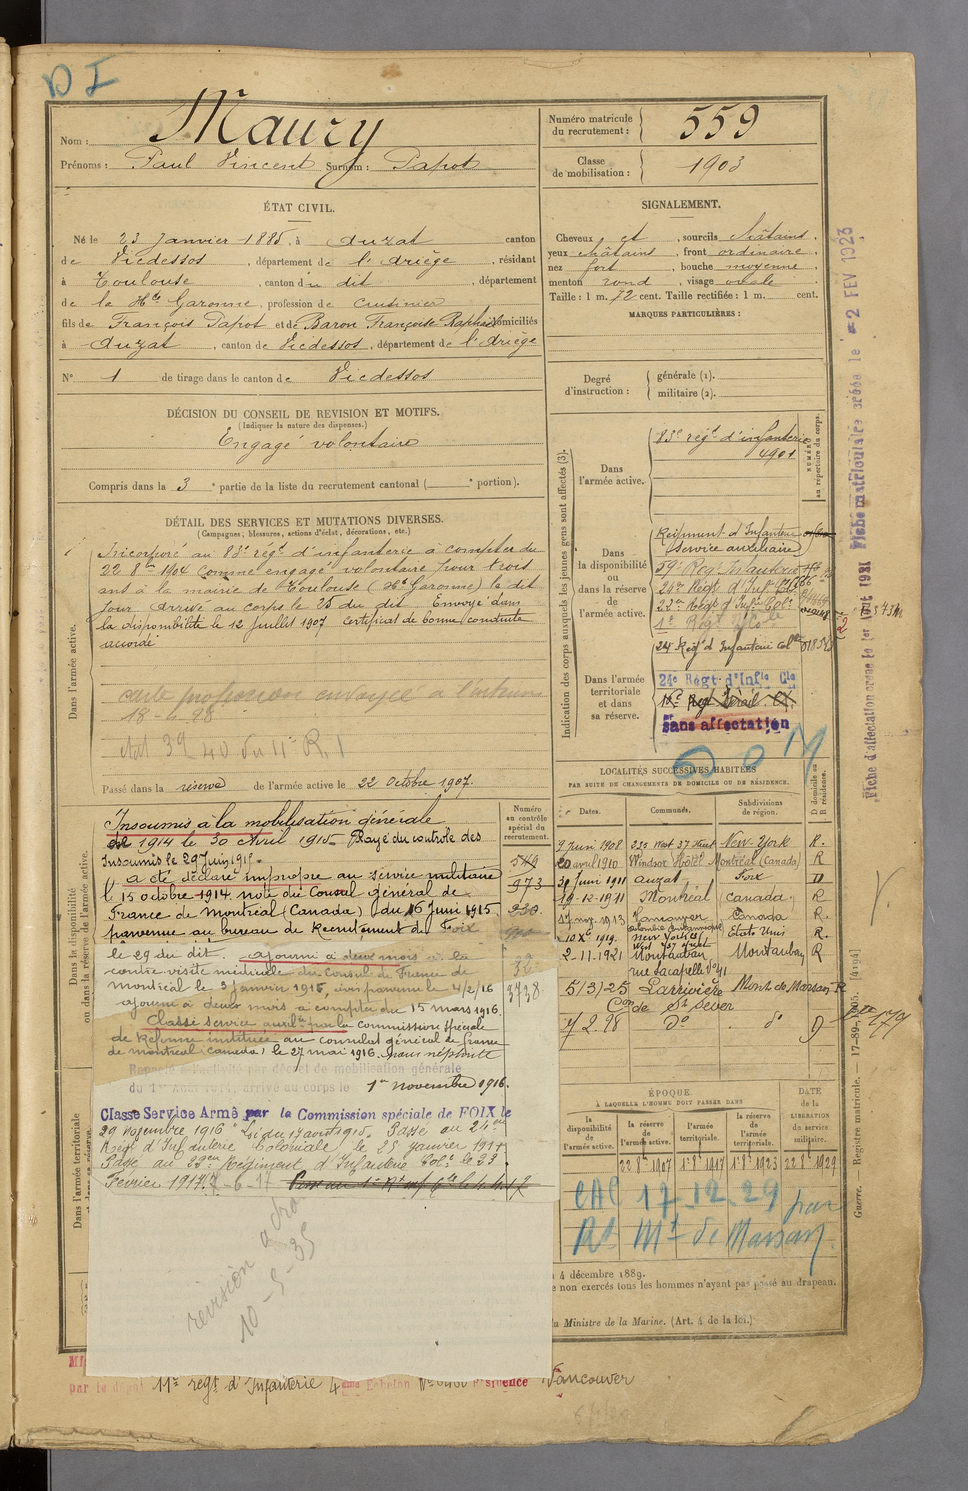 D I
Nom : Maury
Prénoms : Paul Vincent Surnom : Papot
Numéro matricule du recrutement : 559
Classe de mobilisation : 1903
ÉTAT CIVIL.
Né le 23 Janvier 1885, à Auzat canton
de Vicdessos, département de l'Ariège, résidant
à Toulouse, canton d'u dit, département
de la Hte Garonne, profession de Cuisinier
fils de François Papot et de Baron Françoise Raphaël domiciliés
à Auzat, canton de Vicdessos, département de l'Ariège
N° 1 de tirage dans le canton de Vicdessos
SIGNALEMENT.
Cheveux et, sourcils châtains.
yeux châtains, front ordinaire.
nez fort, bouche moyenne
menton rond, visage ovale
Taille : 1 m. 72 cent. Taille rectifiée : 1 m. cent.
MARQUES PARTICULIÈRES :
Degré d'instruction : générale (1).
militaire (2).
DÉCISION DU CONSEIL DE REVISION ET MOTIFS.
(Indiquer la nature des dispenses.)
Engagé volontaire
Compris dans la 3e partie de la liste du recrutement cantonal ( e portion).
DÉTAIL DES SERVICES ET MUTATIONS DIVERSES.
(Campagnes, blessures, actions d'éclat, décorations, etc.)
Dans l'armée active.
Incorporé au 83e régt d'infanterie à compter du
22 8bre 1904 comme engagé volontaire pour trois
ans à la mairie de Toulouse (Hte Garonne) le dit
jour. Arrivé au corps le 25 du dit. Envoyé dans
la disponibilité le 12 Juillet 1907 Certificat de bonne conduite
accordé
Passé dans la réserve de l'armée active le 22 Octobre 1907.
Indication des corps auxquels les jeunes gens sont affectés (3).
NUMÉRO au répertoire du corps.
Dans l'armée active.
83e régt d'infanterie
4901
Dans la disponibilité ou dans la réserve de l'armée active.
Régiment d'Infanterie
(Service auxiliaire)
59e Regt Infanterie
24e Régt d'Inf. Col
22e Régt d'Infie Cole
24 Régt d'Infanterie Cole
Dans l'armée territoriale et dans sa réserve.
24e Régt d'Infie Cle
Sans affectation
Dans la disponibilité ou dans la réserve de l'armée active.
Insoumis à la mobilisation générale
de 1914 le 30 Avril 1915. Rayé du contrôle des
Insoumis le 29 Juin 1915.
a été déclaré impropre au service militaire
le 15 octobre 1914. note du Consul général de
France de Montréal (Canada) du 16 Juin 1915.
parvenue au bureau de Recrutement de Foix
le 29 du dit. ajourné à deux mois à la
contre visite médicale du Consul de France de
Montréal le 3 janvier 1916, avis parvenu le 4/2/16
ajourné à deux mois à compter du 15 mars 1916.
Classé service auxilre par la Commission spéciale
de Réforme instituée au consulat général de france
de montréal (canada) le 27 mai 1916.
Rappelé à l'activité par décret de mobilisation générale
du 1er Août 1914, arrivé au corps le 1er novembre 1916.
Classe Service Armé par la Commission spéciale de FOIX le
29 novembre 1916 Loi du 17 aout 1915. Passé au 24eme
Régt d'Infanterie Coloniale le 25 Janvier 1917
Passé au 22eme Régiment d'Infanterie Cole le 23
Fevrier 1917.
10 - 5 - 35
Numéro au contrôle spécial du recrutement.
549
973
230
32
3738
LOCALITÉS SUCCESSIVES HABITÉES
PAR SUITE DE CHANGEMENTS DE DOMICILE OU DE RÉSIDENCE.
Dates. Communes. Subdivisions de région. D domicile ou R résidence.
9 Juin 1908 239 West 37 Street New-York R.
20 avril 1910 Windsor Hôtel Montréal (Canada) R
30 Juin 1911 Auzat Foix D
19-12-1911 Montréal Canada R
17 nov. 1913 Vancouver Canada R.
10 Xe 1919. New York Etats Unis R.
2-11.1921 Montauban Montauban R
rue Lacapelle No 41
5/3/25 Larrivière Mont de Marsan R
Con de St Sever
7/2.28 do do D
ÉPOQUE
À LAQUELLE L'HOMME DOIT PASSER DANS
la disponibilité de l'armée active. la réserve de l'armée active. l'armée territoriale. la réserve de l'armée territoriale.
DATE de la LIBÉRATION du service militaire.
22 8bre 1907 1er 8bre 1917 1er 8bre 1923 22 8bre 1929
CAC 17.12.29 par
Rt Mt de Marsan
4 décembre 1889.
non exercés tous les hommes n'ayant pas passé au drapeau.
du Ministre de la Marine. (Art. 4 de la loi.)
Dans l'armée territoriale
par le dépôt 11e regt d'Infanterie 4eme Echelon Résidence Vancouver
Fiche matriculaire créée le 2 FEV 1923
Guerre. — Registre matricule. — 17-89-1905.